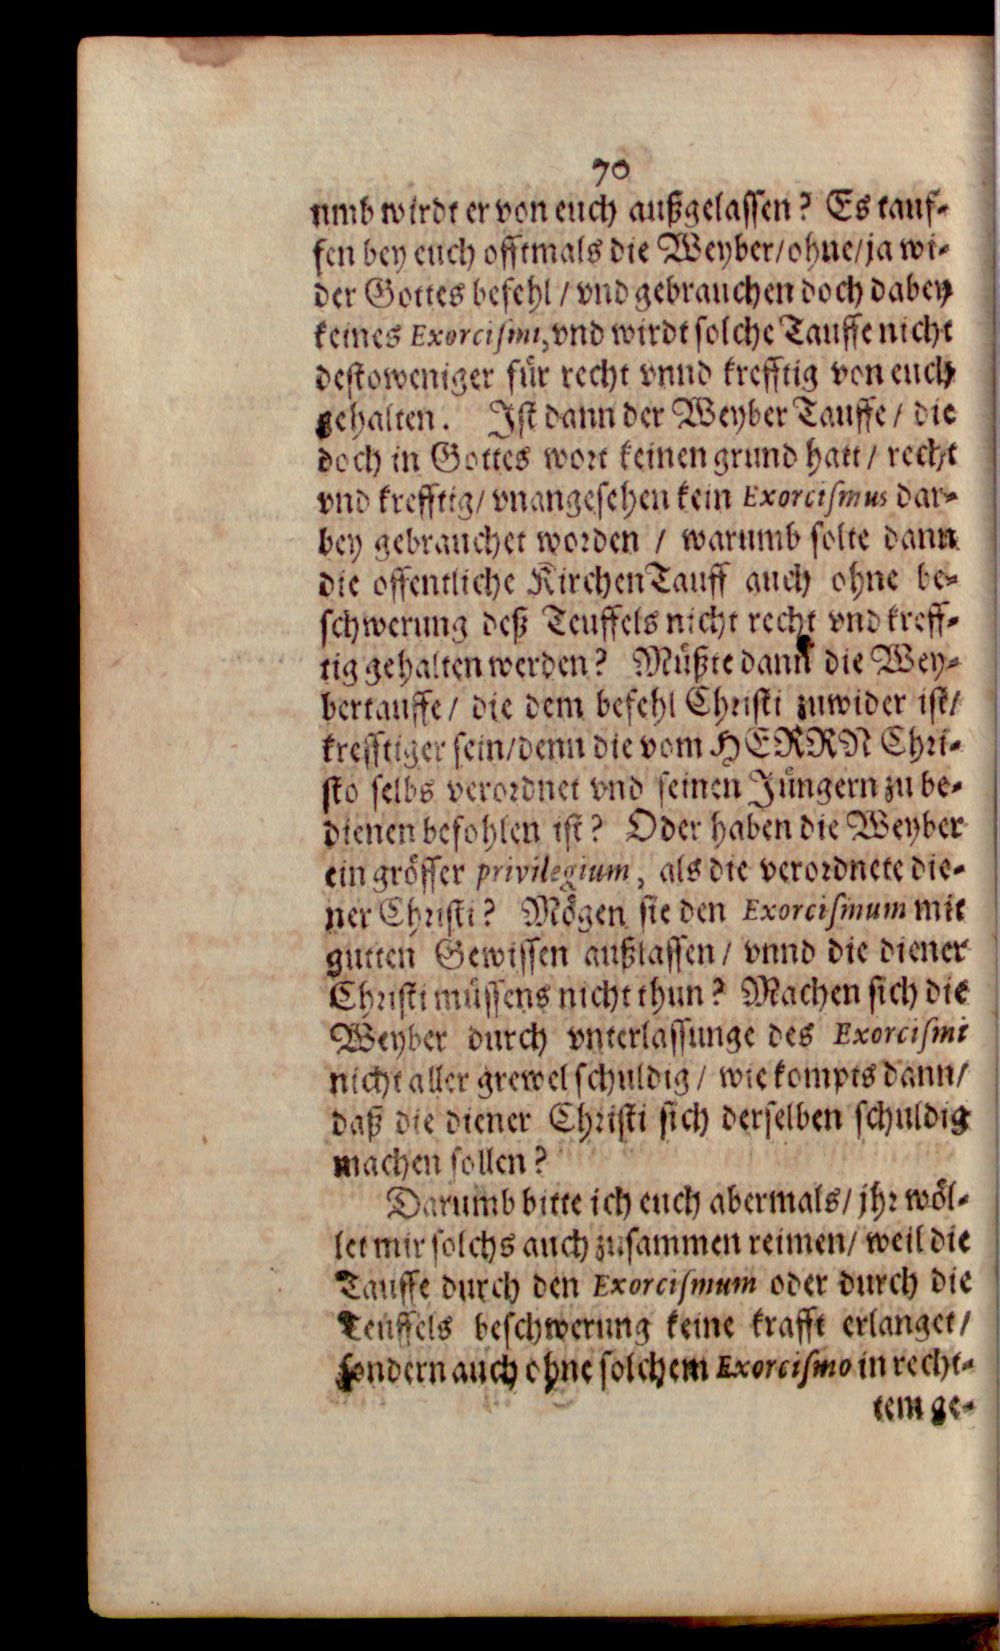 70
umb wirdt er von euch außgelassen? Es tauf-
fen bey euch offtmals die Weyber/ohne/ja wi-
der Gottes befehl / vnd gebrauchen doch dabey
keines Exorcismi, vnd wirdt solche Tauffe nicht
destoweniger für recht vnnd krefftig von euch
gehalten. Ist dann der Weyber Tauffe / die
doch in Gottes wort keinen grund hatt / recht
vnd krefftig/ vnangesehen kein Exorcismus dar-
bey gebrauchet worden / warumb solte dann
die offentliche KirchenTauff auch ohne be-
schwerung deß Teuffels nicht recht vnd kreff-
tig gehalten werden? Müßte dann die Wey-
bertauffe / die dem befehl Christi zuwider ist/
krefftiger sein/denn die vom HERRN Chri-
sto selbs verordnet vnd seinen Jüngern zu be-
dienen befohlen ist? Oder haben die Weyber
ein grösser privilegium, als die verordnete die-
ner Christi? Mögen sie den Exorcismum mit
gutten Gewissen außlassen / vnnd die diener
Christi müssens nicht thun? Machen sich die
Weyber durch vnterlassunge des Exorcismi
nicht aller grewel schuldig / wie kompts dann/
daß die diener Christi sich derselben schuldig
machen sollen?
Darumb bitte ich euch abermals/ jhr wöl-
let mir solchs auch zusammen reimen/ weil die
Tauffe durch den Exorcismum oder durch die
Teuffels beschwerung keine krafft erlanget/
sondern auch ohne solchem Exorcismo in recht-
tem ge-